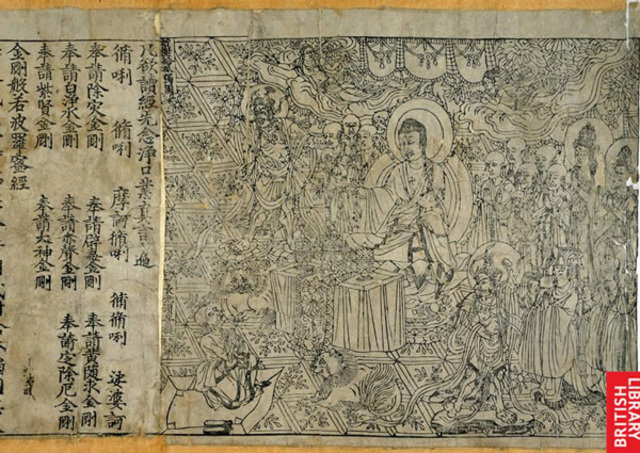 凡欲讀經先念淨口業真言一遍
脩唎 脩唎 摩訶脩唎 脩脩唎 娑婆訶
奉請除灾金剛 奉請辟毒金剛 奉請黃隨求金剛
奉請白淨水金剛 奉請赤聲金剛 奉請定除厄金剛
奉請紫賢金剛 奉請大神金剛
金剛般若波羅蜜經
BRITISH
LIBRARY